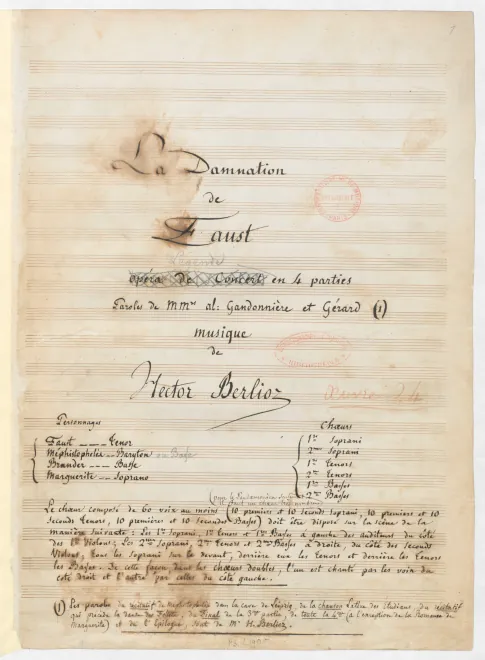 La Damnation
de
Faust
Légende
opéra de Concert en 4 parties
Paroles de MMrs al: Gandonnière et Gérard (1)
musique
de
Hector Berlioz
Œuvre 24
Personnages
Faust ---- Tenor
Méphistophélès -- Baryton ou Basse
Brander ---- Basse
Marguerite --- Soprano
Chœurs
1rs Soprani
2mes Soprani
1rs Tenors
2mes Tenors
1res Basses
2mes Basses
Le chœur composé de 60 voix au moins (10 premiers et 10 seconds Soprani, 10 premiers et 10
seconds Tenors, 10 premieres et 10 secondes Basses) doit être disposé sur la scène de la
manière suivante: Les 1rs Soprani, 1rs Tenors et 1res Basses à gauche des auditeurs du côté
des 1rs Violons; Les 2mes Soprani, 2mes Tenors et 2mes Basses à droite, du côté des seconds
Violons, tous les Soprani sur le devant, derrière eux les Tenors et derrière les Tenors
les Basses. De cette façon dans les chœurs doubles, l'un est chanté par les voix du
côté droit et l'autre par celles du côté gauche.
(1) Les paroles du récitatif de Méphistophélès dans la cave de Leipzig, de la chanson Latine des Etudians, du récitatif
qui précède la danse des Follets, du Final de la 3me partie, de toute la 4me (à l'exception de la Romance de
Marguerite) et de l'Epilogue, sont de Mr H. Berlioz.